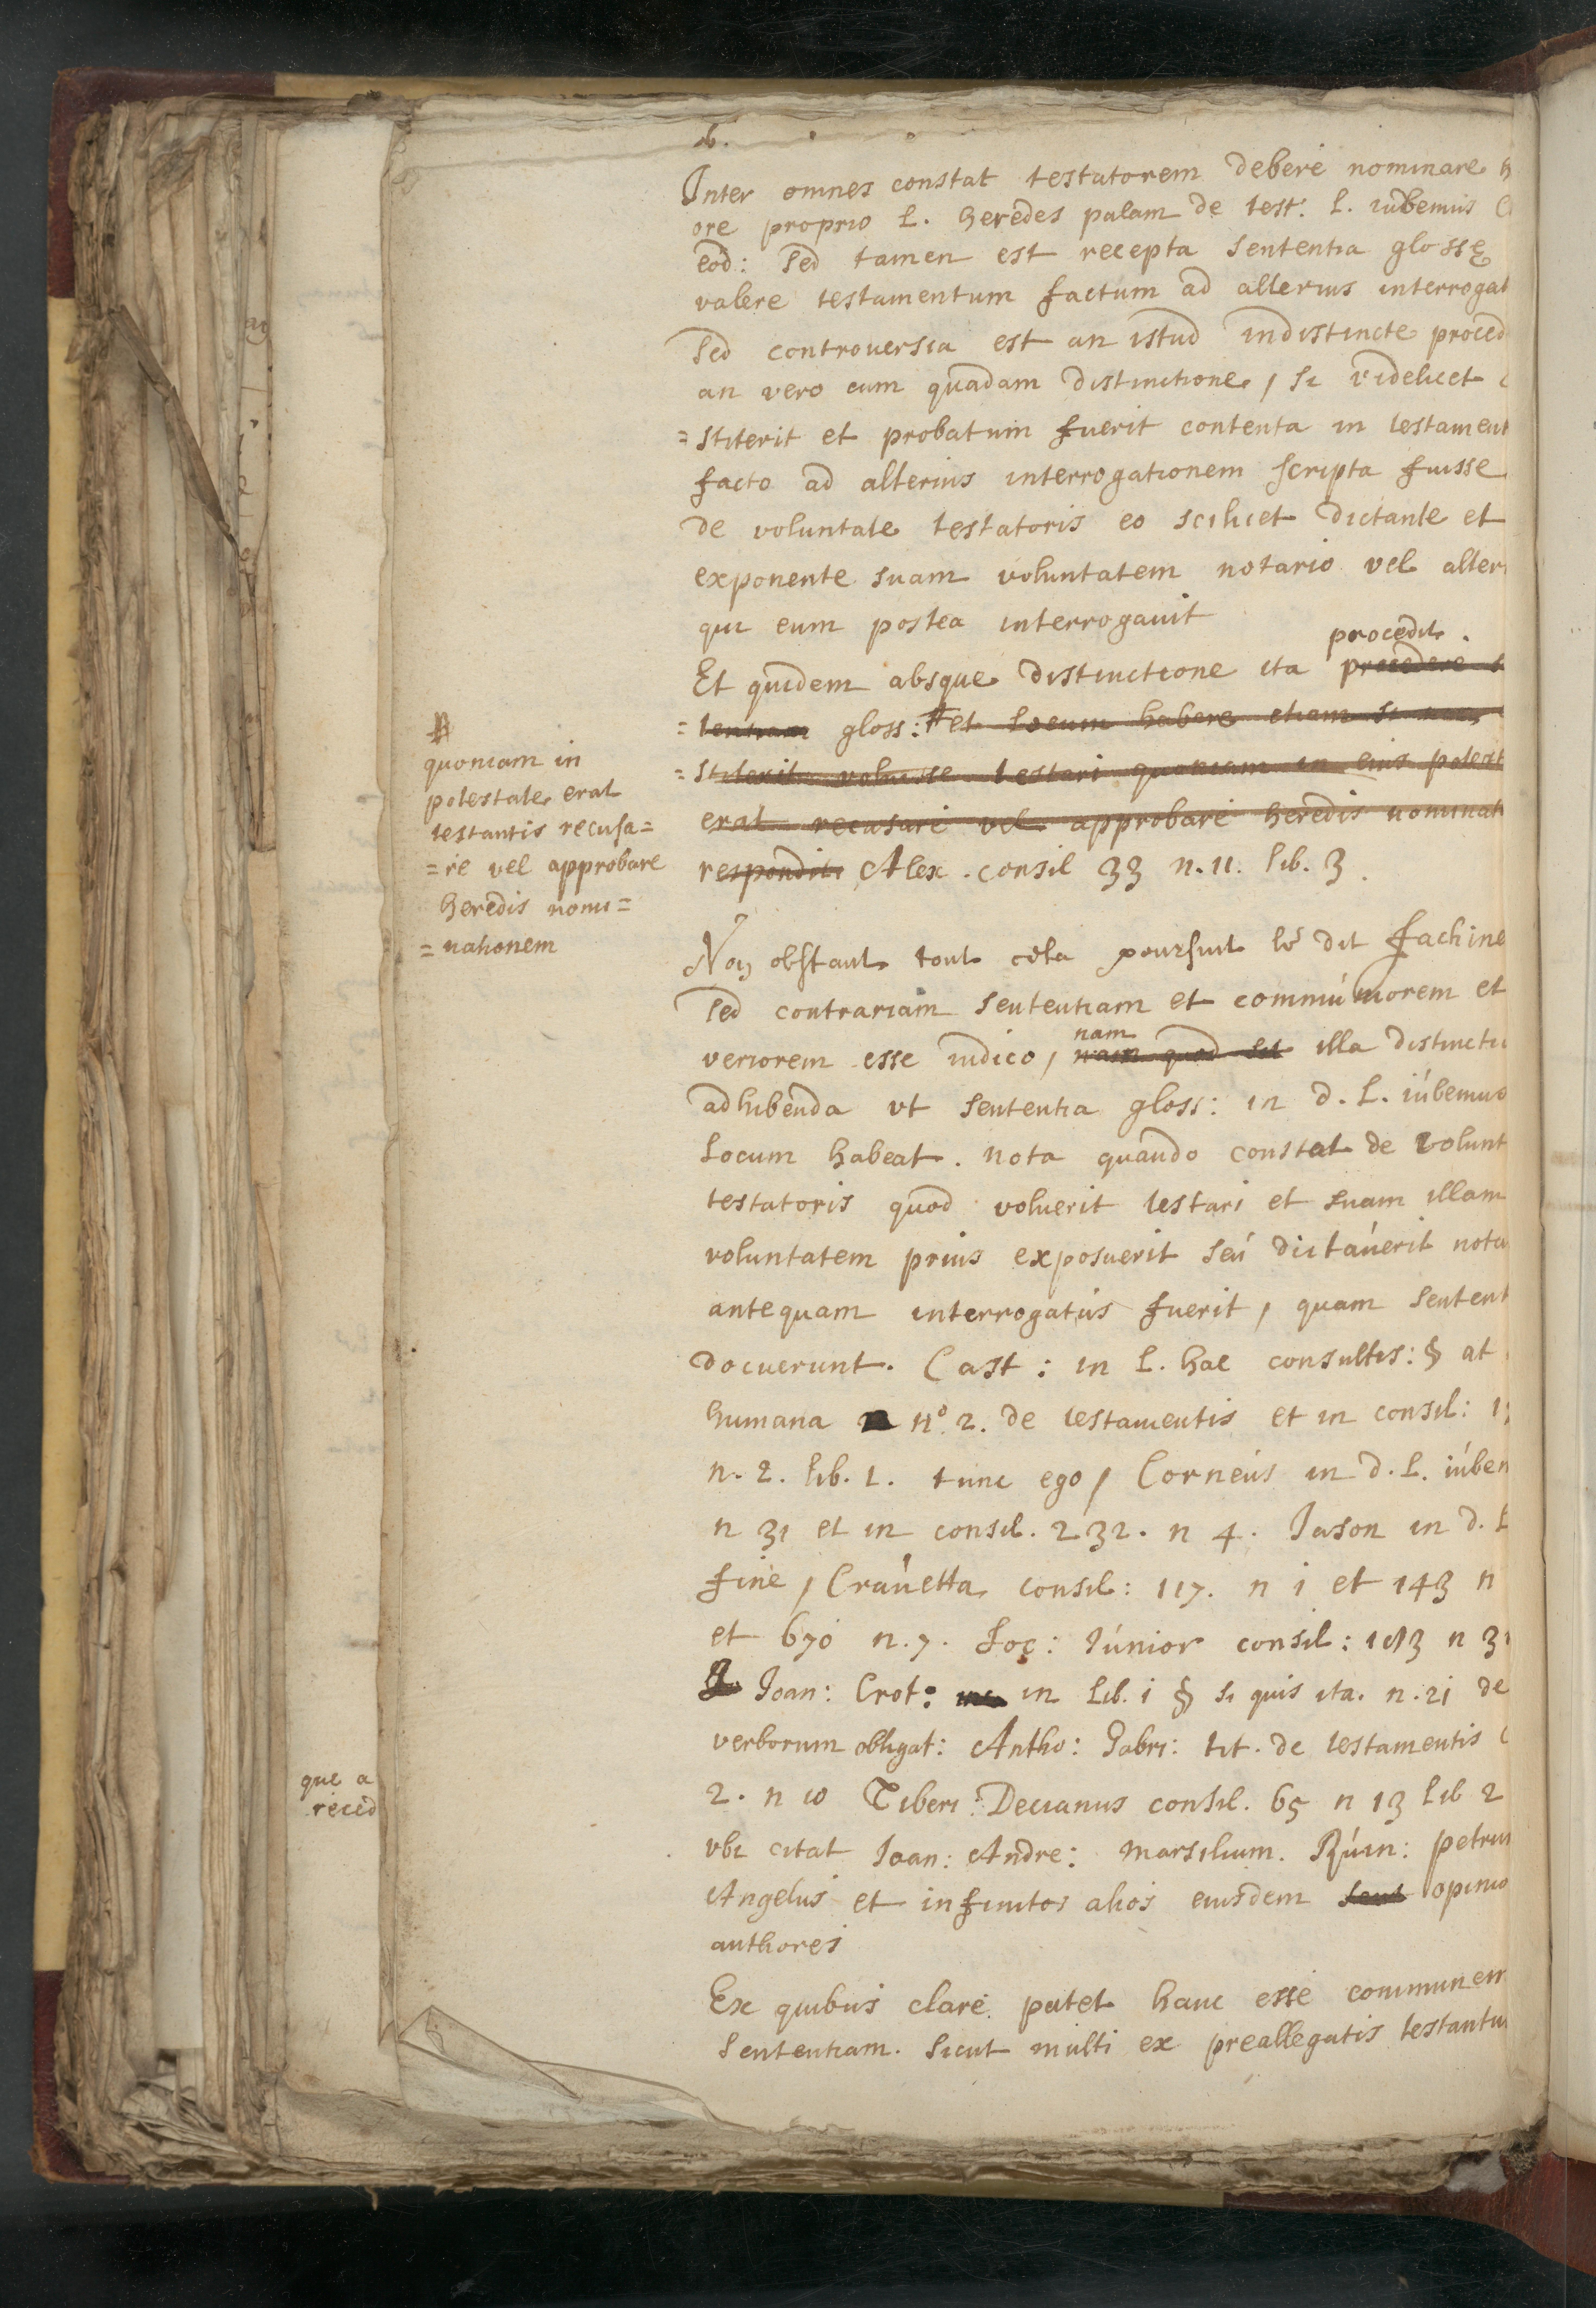 Inter omnes constat testatorem debere nominare h
ore proprio l. heredes palam de test: l. iubemus C
eod: sed tamen est recepta sententia glossę
valere testamentum factum ad alterius interrogat
sed controuersia est an istud indistincte proced
an vero cum quadam distinctione, si videlicet c
=stiterit et probatum fuerit contenta in testament
facto ad alterius interrogationem scripta fuisse
de voluntate testatoris eo scilicet dictante et
exponente suam voluntatem notario vel alteri
qui eum postea interrogauit
procedit
Et quidem absque distinctione ita procedere s
=tentiam gloss: # et locum habere etiam si non
=stiterit voluisse testari quoniam in eius potest
erat recusare vel approbare heredis nominati
respondit Alex. consil 33 n. 11. lib. 3.
#
quoniam in
potestate erat
testantis recusa=
=re vel approbare
heredis nomi=
=nationem
Non obstant tout cela poursuit le dit fachine
sed contrariam sententiam et communiorem et
nam
veriorem esse iudico, nam quod sit illa distinctio
adhibenda vt sententia gloss: in d. l. iúbemus
locum habeat. nota quando constat de volunt
testatoris quod voluerit testari et suam illam
voluntatem prius exposuerit seú dictáuerit nota
antequam interrogatús fuerit, quam sentent
docuerunt. Cast: in l. hac consultis: § at
humana n.º 2. de testamentis et in consil: 1
n. 2. lib. 1. tunc ego, Corneús in d. l. iúbem
n 31 et in consil. 232. n 4. Jason in d. l
fine, Craúetta consil: 117. n i et 143 n
et 670 n. 7. Soc: Iúnior consil: 113 n 31
Joan: Crot: in lib. i § si quis ita. n. 21 de
verborum obligat: Antho: Gabri: tit. de testamentis C
2. n 10 Tiberi: Decianus consil. 65 n 13 lib 2
vbi citat Joan: Andre: Marsilium. Rúin: petrum
Angelus et infinitos alios eiusdem sent opinio
authores
Ex quibus clare patet hanc esse communem
sententiam. sicut multi ex preallegatis testantur
que a
reced